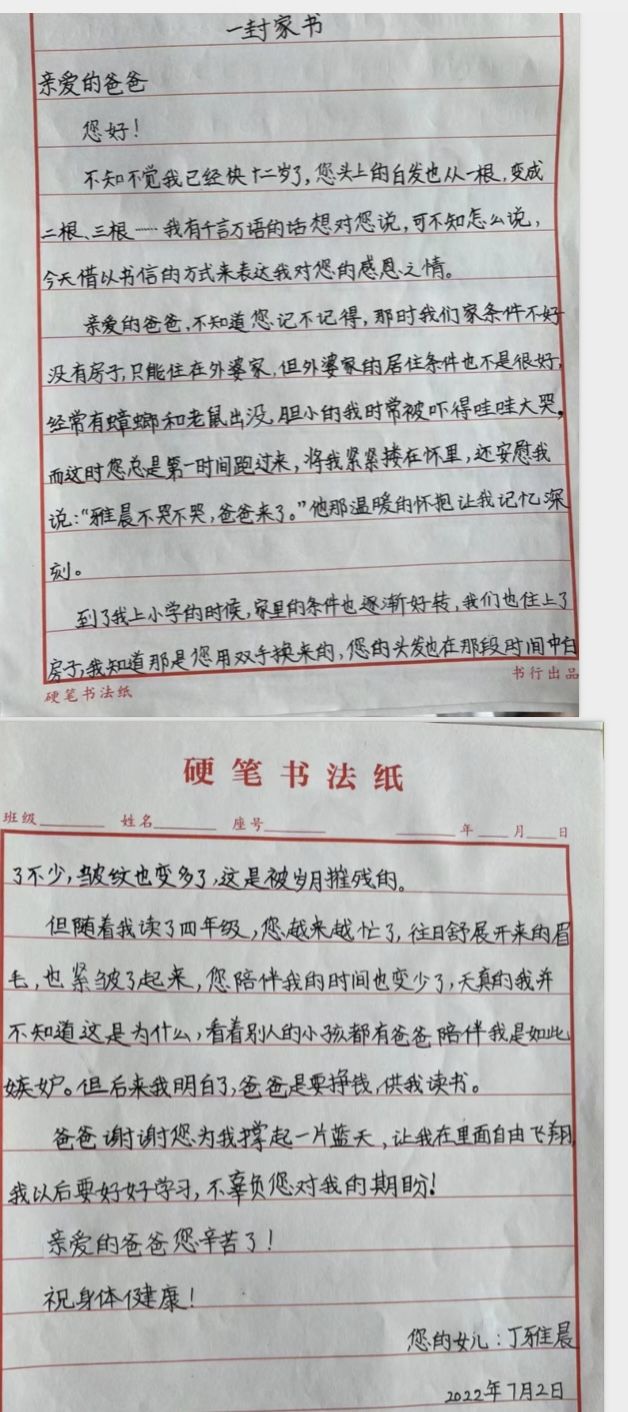 一封家书
亲爱的爸爸
您好！
不知不觉我已经快十二岁了，您头上的白发也从一根，变成
二根、三根……我有千言万语的话想对您说，可不知怎么说，
今天借以书信的方式来表达我对您的感恩之情。
亲爱的爸爸，不知道您记不记得，那时我们家条件不好
没有房子，只能住在外婆家，但外婆家的居住条件也不是很好，
经常有蟑螂和老鼠出没，胆小的我时常被吓得哇哇大哭，
而这时您总是第一时间跑过来，将我紧紧搂在怀里，还安慰我
说：“雅晨不哭不哭，爸爸来了。”他那温暖的怀抱让我记忆深
刻。
到了我上小学的时候，家里的条件也逐渐好转，我们也住上了
房子，我知道那是您用双手换来的，您的头发也在那段时间中白
硬笔书法纸
书行出品
硬笔书法纸
班级 姓名 座号 年 月 日
了不少，皱纹也变多了，这是被岁月摧残的。
但随着我读了四年级，您越来越忙了，往日舒展开来的眉
毛，也紧皱了起来，您陪伴我的时间也变少了，天真的我并
不知道这是为什么，看着别人的小孩都有爸爸陪伴我是如此
嫉妒。但后来我明白了，爸爸是要挣钱，供我读书。
爸爸谢谢您为我撑起一片蓝天，让我在里面自由飞翔，
我以后要好好学习，不辜负您对我的期盼！
亲爱的爸爸您辛苦了！
祝身体健康！
您的女儿：丁雅晨
2022年7月2日